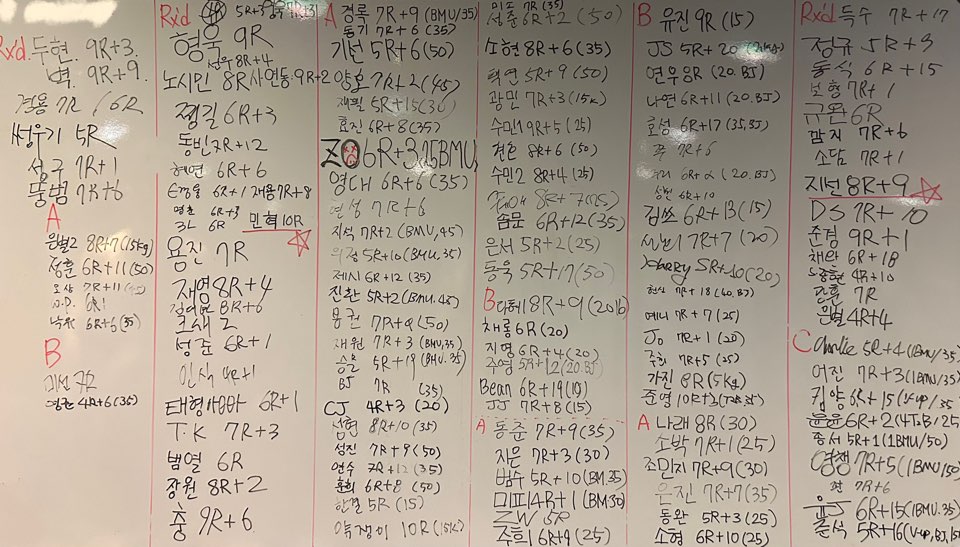 Rx'd. 두현. 9R+3.
벽. 9R+9.
경용 7R / 6R
쌍욱기 5R
성구 7R+1
뚱범 7R+6
A
은별2 8R+7(15kg)
정훈 6R+11(50)
6R1
낙원 6R+6(35)
B
미선 7R
영관 4R+6(35)
Rx'd
5R+3
형욱 9R
선우 8R+4
노시인 8R 사연동 9R+2
쩡길 6R+3
동빈 7R+12
허연 6R+6
6R+1 재용 7R+8
영호 6R+3
3L 6R
민혁 10R
용진 7R
재영 8R+4
8R+6
성준 6R+1
인식 4R+1
태형 6R+1
T.K 7R+3
범열 6R
장원 8R+2
충 9R+6
A 경록 7R+9(BMU/35)
동기 7R+6(35)
기선 5R+6(50)
양호 7R+2(45)
재필 5R+15(30)
효진 6R+8(35)
ZO 6R+3(15BMU)
영대 6R+6(35)
연성 7R+6
지석 7R+2(BMU,45)
의정 5R+10(BMU.35)
제시 6R+12(35)
진환 5R+2(BMU.45)
용권 7R+9(50)
재원 7R+3(BMU,35)
승은 5R+19(BMU.35)
BJ 7R (35)
CJ 4R+3(20)
섬현 8R+10(35)
성진 7R+9(50)
연수 7R+12(35)
훈희 6R+8(50)
한결 5R(15)
약쟁이 10R(15K)
7R(35)
성준 6R+2(50)
소현 8R+6(35)
혁연 5R+9(50)
광민 7R+3(15k)
수민1 9R+5(25)
건호 8R+6(50)
수민2 8R+4(25)
8R+7
솜문 6R+12(35)
은서 5R+2(25)
동욱 5R+17(50)
B 다혜 8R+9(20lb)
채롱 6R(20)
지영 6R+4(20)
주영 5R+12(20.BJ)
Bean 6R+19(10)
JJ 7R+8(15)
A 동준 7R+9(35)
지은 7R+3(30)
범수 5R+10(BM.35)
미피 4R+1(BM.30)
ZW 5R
주희1 6R+9(25)
B 유진 9R(15)
JS 5R+20
연우 8R(20.BJ)
나연 6R+11(20.BJ)
효성 6R+17(35,BJ)
쭈 7R+6
6R+2(20.BJ)
6R+10
김쏘 6R+13(15)
7R+7(20)
Xherry 5R+10(20)
현산 7R+18(40.BJ)
메니 7R+7(25)
Jo 7R+1(20)
주희 7R+5(25)
가진 8R(5kg)
준영 10R+3
A 나래 8R(30)
소박 7R+1(25)
조민지 7R+9(30)
은진 7R+7(35)
동완 5R+3(25)
소형 6R+10(25)
Rx'd 득수 7R+17
정규 5R+9
동식 6R+15
보형 7R+1
규완 6R
맘지 7R+6
소담 7R+1
지선 8R+9
DS 7R+10
준경 9R+1
채완 6R+18
4R+10
판훈 7R
은별 4R+4
C Charlie 5R+4(1BMU/35)
어진 7R+3(1BMU/35)
김양 6R+15(V-up/35
윤윤 6R+2(4ToB/25
홍서 5R+1(1BMU/50)
영쟁 7R+5(1BMU/50)
짠 7R+6
유J 6R+15(1BMU.35)
출석 5R+16(V-up,BJ,15